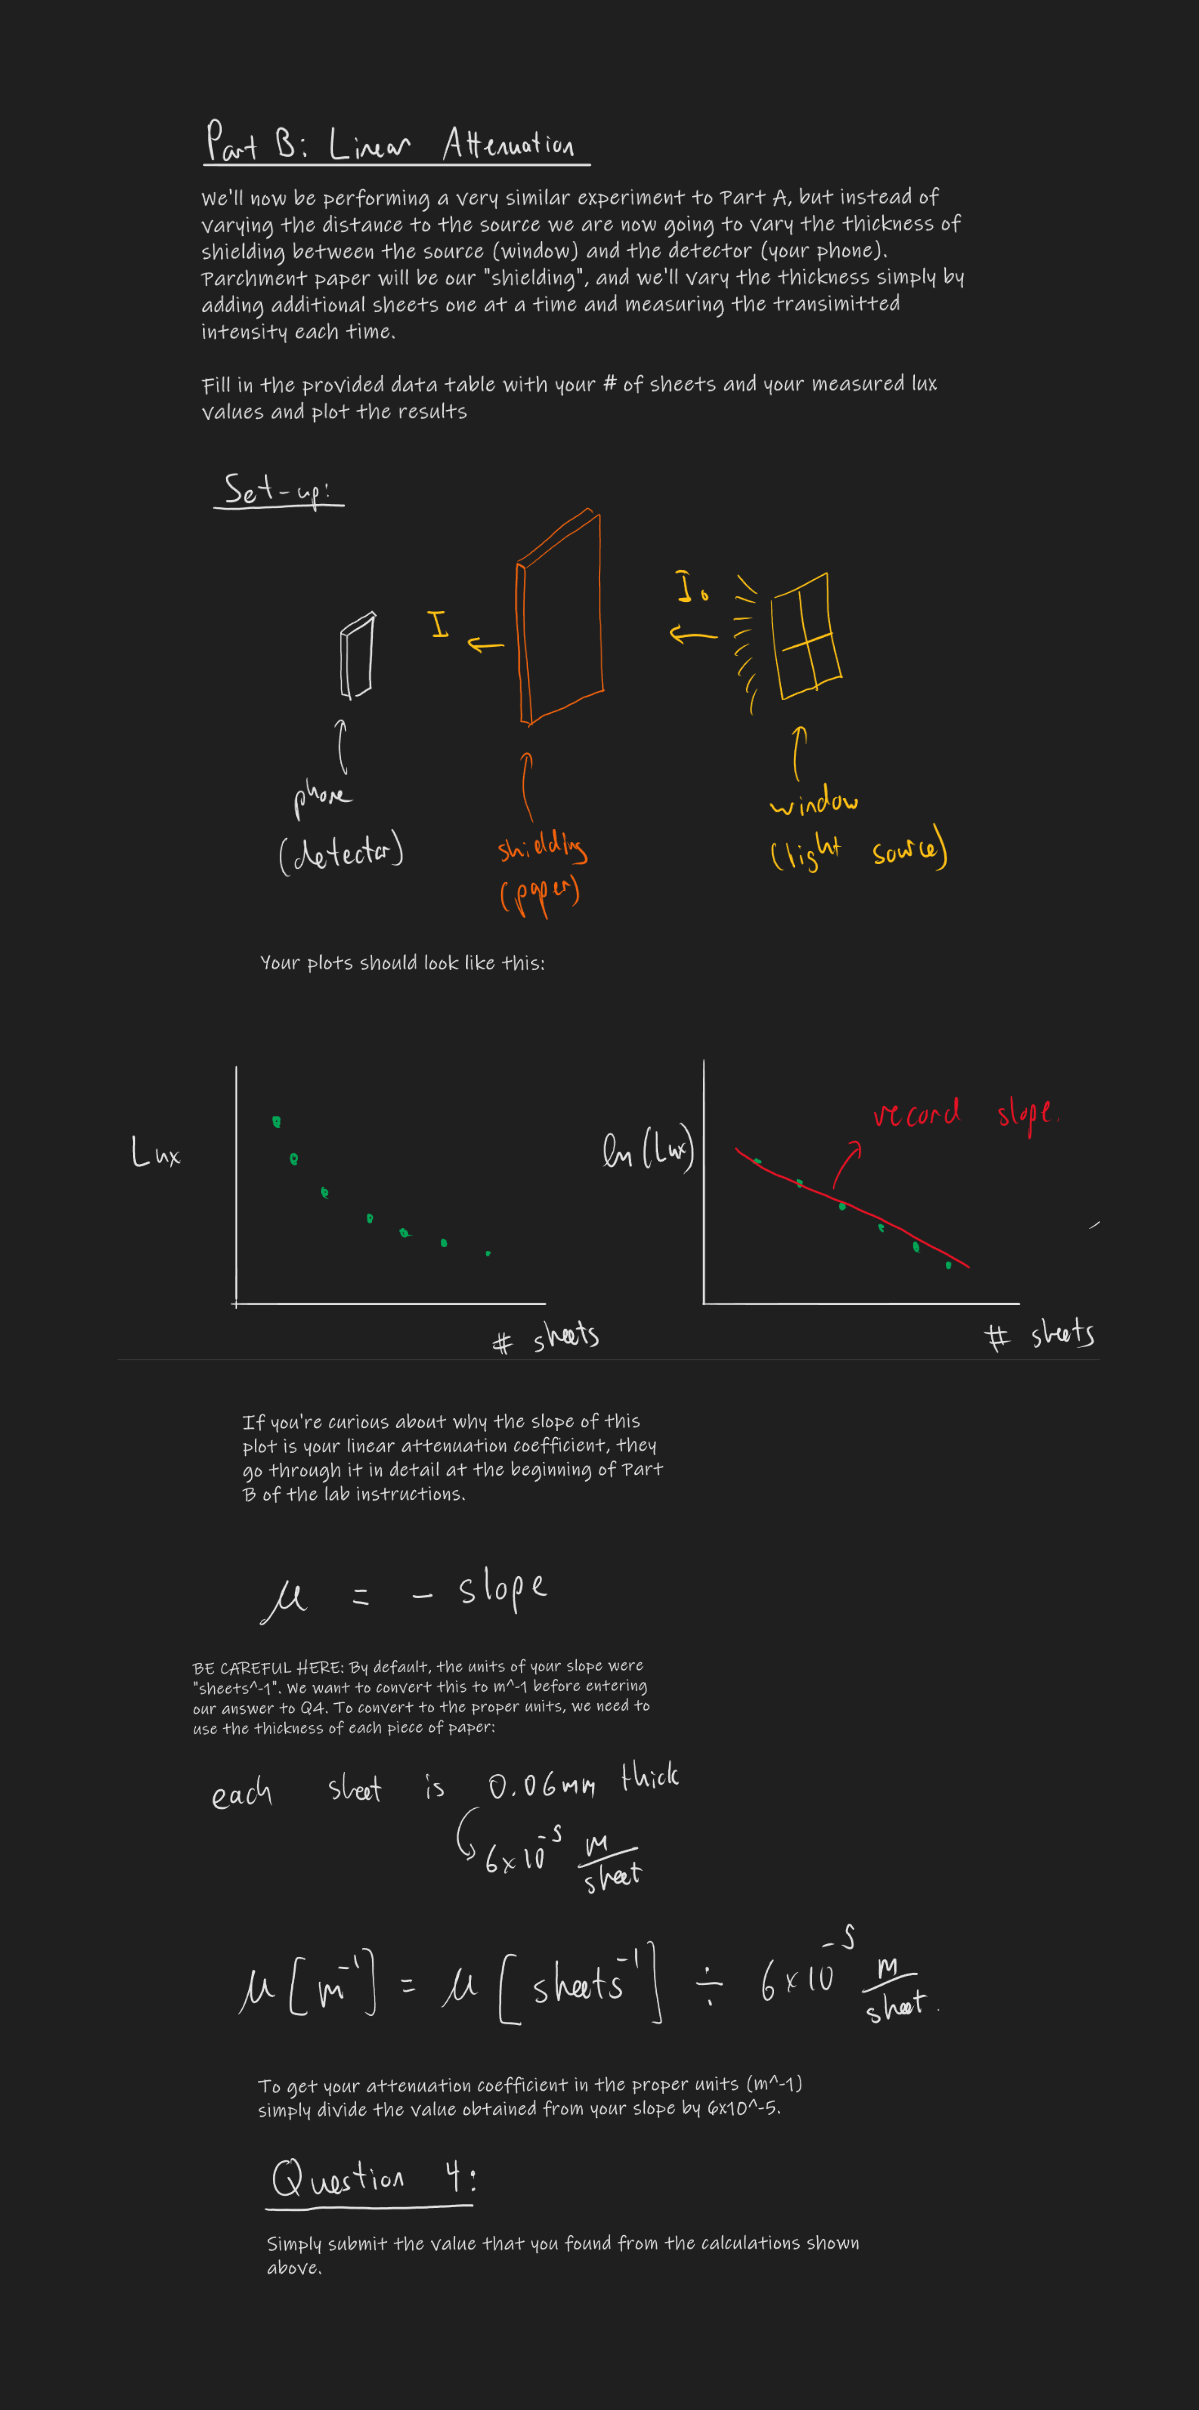 Part B: Linear Attenuation
We'll now be performing a very similar experiment to Part A, but instead of
varying the distance to the source we are now going to vary the thickness of
shielding between the source (window) and the detector (your phone).
Parchment paper will be our "shielding", and we'll vary the thickness simply by
adding additional sheets one at a time and measuring the transimitted
intensity each time.
Fill in the provided data table with your # of sheets and your measured lux
values and plot the results
Set-up:
I
I₀
phone
(detector)
shielding
(paper)
window
(light source)
Your plots should look like this:
Lux
# sheets
ln(Lux)
record slope.
# sheets
If you're curious about why the slope of this
plot is your linear attenuation coefficient, they
go through it in detail at the beginning of Part
B of the lab instructions.
μ = - slope
BE CAREFUL HERE: By default, the units of your slope were
"sheets^-1". We want to convert this to m^-1 before entering
our answer to Q4. To convert to the proper units, we need to
use the thickness of each piece of paper:
each sheet is 0.06mm thick
6x10⁻⁵ m/sheet
μ[m⁻¹] = μ[sheets⁻¹] ÷ 6x10⁻⁵ m/sheet.
To get your attenuation coefficient in the proper units (m^-1)
simply divide the value obtained from your slope by 6x10^-5.
Question 4:
Simply submit the value that you found from the calculations shown
above.